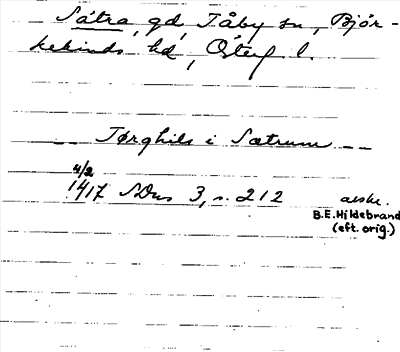 Sätra, gd, Tåby sn, Björ-
kekinds hd, Österg l.
-- Tørghils i Sætrum --
4/2
1417 SDns 3, s. 212 avskr.
B.E. Hildebrand
(eft. orig.)